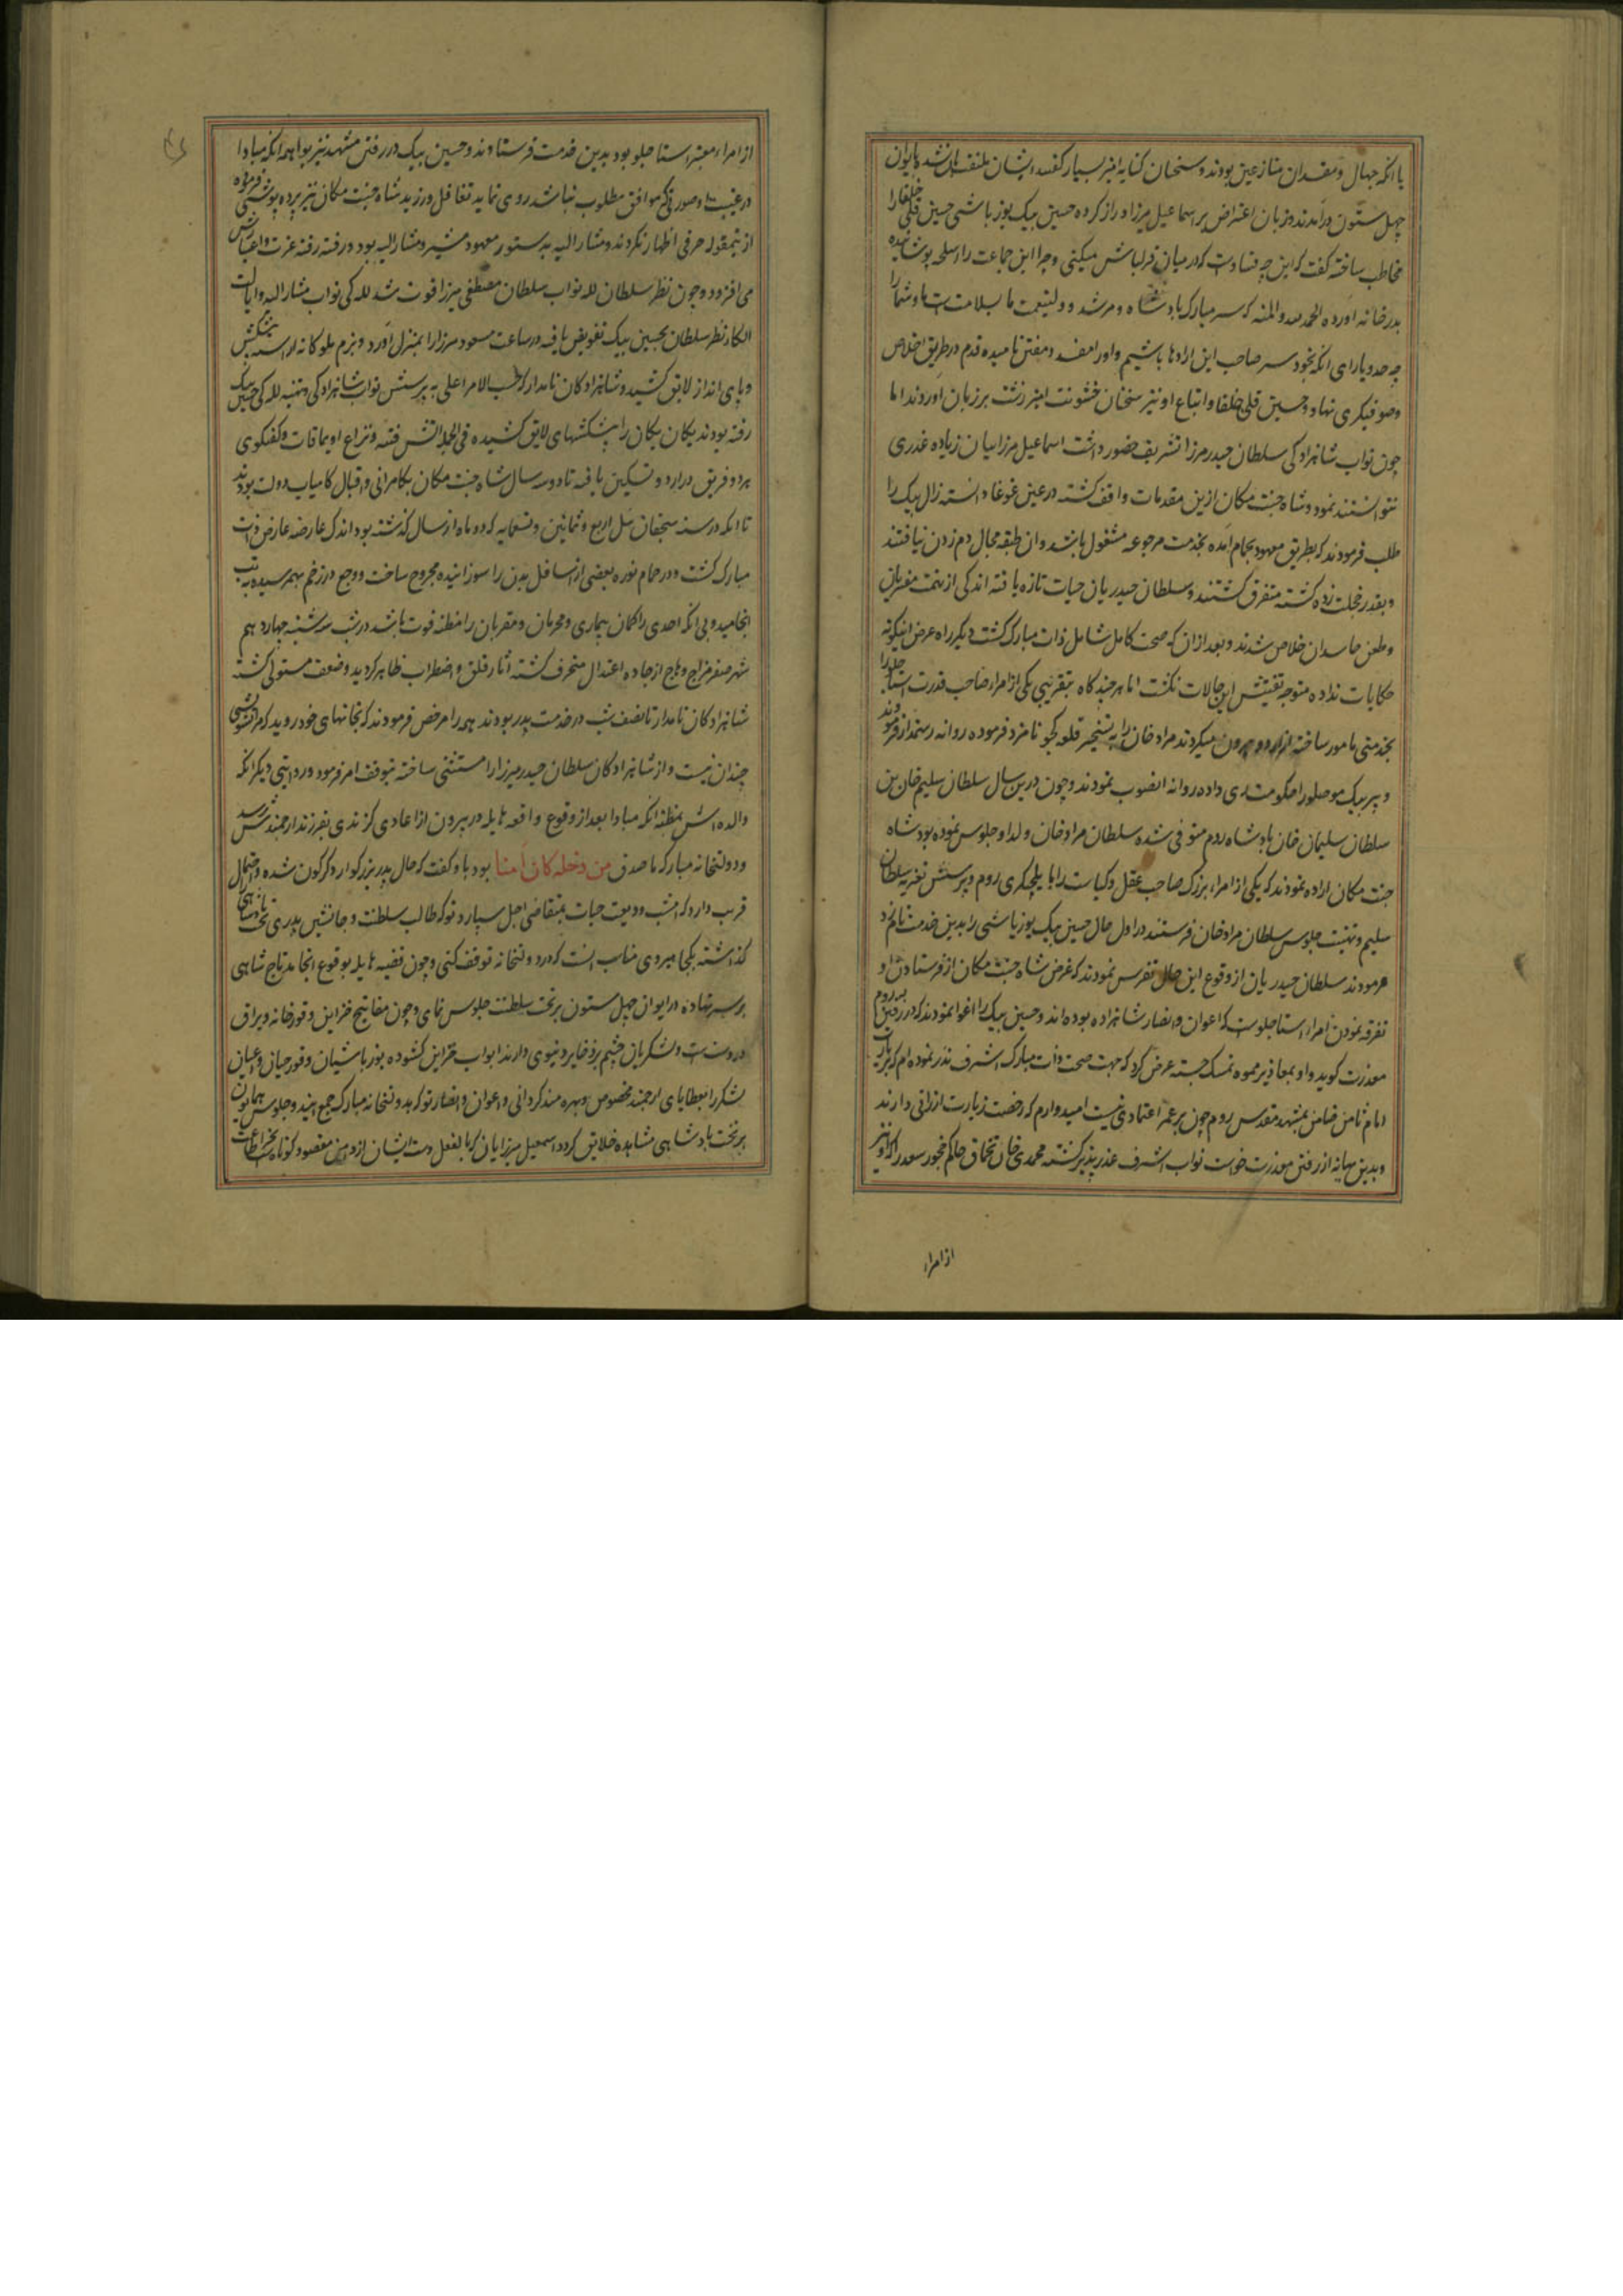 با آنکه جهال و مفسدان منازعین بودند و سخنان کنایه آمیز بسیار گفتند ایشان ملتفت نشده بایوان
چهل ستون درآمدند و زبان اعتراض بر اسماعیل میرزا دراز کرده حسین بیک یوزباشی حسین قلی خلفا را
مخاطب ساخته گفت که این چه فسادست که در میان قزلباش میکنی و چرا این جماعت را اسلحه پوشانیده
بدرخانه آورده الحمد لله والمنه که سر مبارک پادشاه و مرشد و ولینعمت ما بسلامت است ما و شما را
چه حد و یارای آنکه بخود سر صاحب این اراده‌ها باشیم و او را مفسد و مفتن نامیده قدم در طریق اخلاص
و صوفیگری نهاد و حسین قلی خلفا و اتباع او نیز سخنان خشونت آمیز زشت بر زبان آوردند اما
چون نواب شاهزادگی سلطان حیدر میرزا تشریف حضور داشت اسماعیل میرزاییان زیاده غدری
نتوانستند نمود و شاه جنت مکان ازین مقدمات واقف گشته در عین غوغا دانسته زال بیک را
طلب فرمودند که بطریق معهود بحمام آمده بخدمت مرجوعه مشغول باشد و آن طبقه مجال دم زدن نیافتند
و بقدر خجلت زده گشته متفرق گشتند و سلطان حیدریان حیات تازه یافته اندکی از تهمت مفتریان
و طعن حاسدان خلاص شدند و بعد از آن که صحت کامل شامل ذات مبارک گشت دیگر راه عرض اینگونه
حکایات نداده متوجه تفتیش این حالات نگشت اما هر چند گاه بتقریبی یکی از امراء صاحب قدرت استاجلو را
بخدمتی مامور ساخته از اردو بیرون میکردند مراد خان را به تسخیر قلعه کجو نامزد فرموده روانه رستمدار فرمودند
و پیره بیک موصلو را حکومت ری داده روانه آنصوب نمودند و چون درین سال سلطان سلیم خان بن
سلطان سلیمان خان پادشاه روم متوفی شده سلطان مراد خان ولد او جلوس نموده بود شاه
جنت مکان اراده نمودند که یکی از امراء بزرگ صاحب عقل و کیاست را بایلچیگری روم و پرسش تعزیه سلطان
سلیم و تهنیت جلوس سلطان مراد خان فرستند در اول حال حسین بیک یوزباشی را بدین خدمت نامزد
فرمودند سلطان حیدریان از وقوع این حال تفرس نمودند که غرض شاه جنت مکان از فرستادن او
تفرقه نمودن امراء استاجلوست که اعوان و انصار شاهزاده بوده‌اند و حسین بیک را اغوا نمودند که در رفتن بروم
معذرت گوید و او بمعاذیر مموه تمسک جسته عرض کرد که جهت صحت ذات مبارک اشرف نذر نموده‌ام که بزیارت
امام ثامن ضامن بمشهد مقدس روم چون بر عمر اعتمادی نیست امیدوارم که رخصت زیارت ارزانی دارند
و بدین بهانه از رفتن معذرت خواست نواب اشرف عذرپذیر گشته محمدی خان تخماق حاکم چخور سعد را که او نیز
از امراء
از امراء معتبر استاجلو بود بدین خدمت فرستادند و حسین بیک در رفتن مشهد نیز بواهمه آنکه مبادا
در غیبت او صورتی که موافق مطلوب نباشد روی نماید تغافل ورزید شاه جنت مکان نیز پرده پوشی فرموده
ازینمقوله حرفی اظهار نکردند و مشارالیه بدستور معهود مشیر و مشارالیه بود و رفته رفته عزت و اعتبارش
می افزود و چون نظر سلطان لله نواب سلطان مصطفی میرزا فوت شد للگی نواب مشارالیه و ایالت
الکاء نظر سلطان بحسین بیک تفویض یافته در ساعت مسعود میرزا را بمنزل آورد و بزم ملوکانه آراسته پیشکش
و پای انداز لایق کشید و شاهزادگان نامدار که حسب الامر اعلی به پرسش نواب شاهزادگی و تهنیه للگی حسین بیک
رفته بودند یکان یکان را پیشکشهای لایق کشیده فی الجمله آتش فتنه و نزاع اویماقات و گفتگوی
هر دو فریق در اردو تسکین یافته تا دو سه سال شاه جنت مکان بکامرانی و اقبال کامیاب دولت بودند
تا آنکه در سنه سیچقان ئیل اربع و ثمانین و تسعمایه که دو ماه از سال گذشته بود اندک عارضه عارض ذات
مبارک گشت و در حمام نوره بعضی از اسافل بدن را سوزانیده مجروح ساخت و وجع در زخم بهم رسیده به تب
انجامید و بی آنکه احدی را گمان بیماری و محرمان و مقربان را مظنه فوت باشد در شب سه شنبه چهاردهم
شهر صفر مزاج وهاج از جاده اعتدال منحرف گشته آثار قلق و اضطراب ظاهر گردید و ضعف مستولی گشته
شاهزادگان نامدار تا نصف شب در خدمت پدر بودند همه را مرخص فرمودند که بخانهای خود روید که مرا تشویشی
چندان نیست و از شاهزادگان سلطان حیدر میرزا را مستثنی ساخته بتوقف امر فرمود و روایتی دیگر آنکه
والده‌اش بمظنه آنکه مبادا بعد از وقوع واقعه هایله در بیرون از اعادی گزندی بفرزند ارجمندش رسد
و دولتخانه مبارکه ما صدق من دخله کان آمنا بود باو گفت که حال پدر بزرگوار دگرگون شده و احتمال
قریب دارد که امشب ودیعت حیات بمتقاضی اجل سپارد تو که طالب سلطنت و جانشین پدری تخت پادشاهی
گذاشته بکجا میروی مناسب آنست که در دولتخانه توقف کنی و چون قضیه هایله بوقوع انجامد تاج شاهی
بر سر نهاده در ایوان چهل ستون بر تخت سلطنت جلوس نمای و چون مفاتیح خزاین و قورخانه و یراق
در دست تست و لشکریان چشم بر ذخایر دنیوی دارند ابواب خزاین گشوده یوزباشیان و قورچیان و اعیان
لشکر را بعطایای ارجمند مخصوص و بهره‌مند گردانی و اعوان و انصار تو که بدولتخانه مبارک جمع آیند و جلوس همایون
بر تخت پادشاهی مشاهده خلایق گردد اسمعیل میرزاییان را که بالفعل دست ایشان از دامن مقصود کوتاه است بجز اطاعت